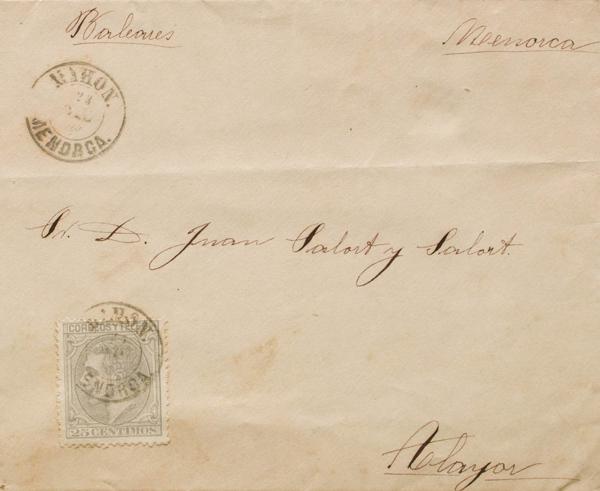 Baleares
Menorca
MAHON.
24
MENORCA.
Sr. D. Juan Salort y Salort.
CORREOS Y TELEG
MAHON.
MENORCA.
25 CENTIMOS
Alayor